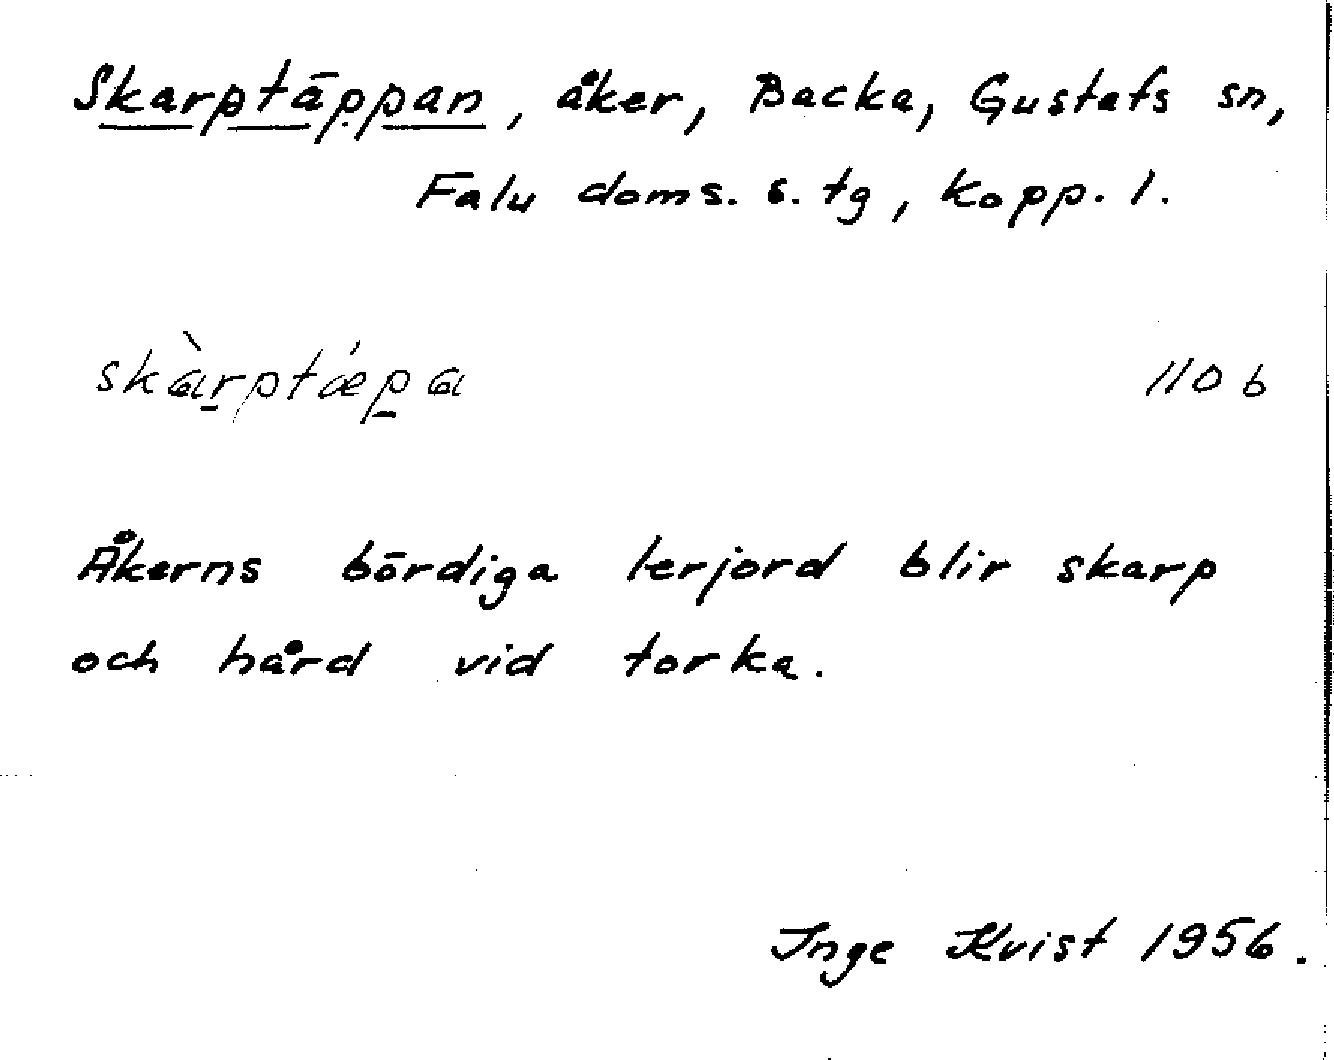 Skarptäppan, åker, Backa, Gustafs sn,
Falu doms. s. tg, Kopp. l.
skàr̲ptǽp̲a 110 b
Åkerns bördiga lerjord blir skarp
och hård vid torka.
Inge Kvist 1956.